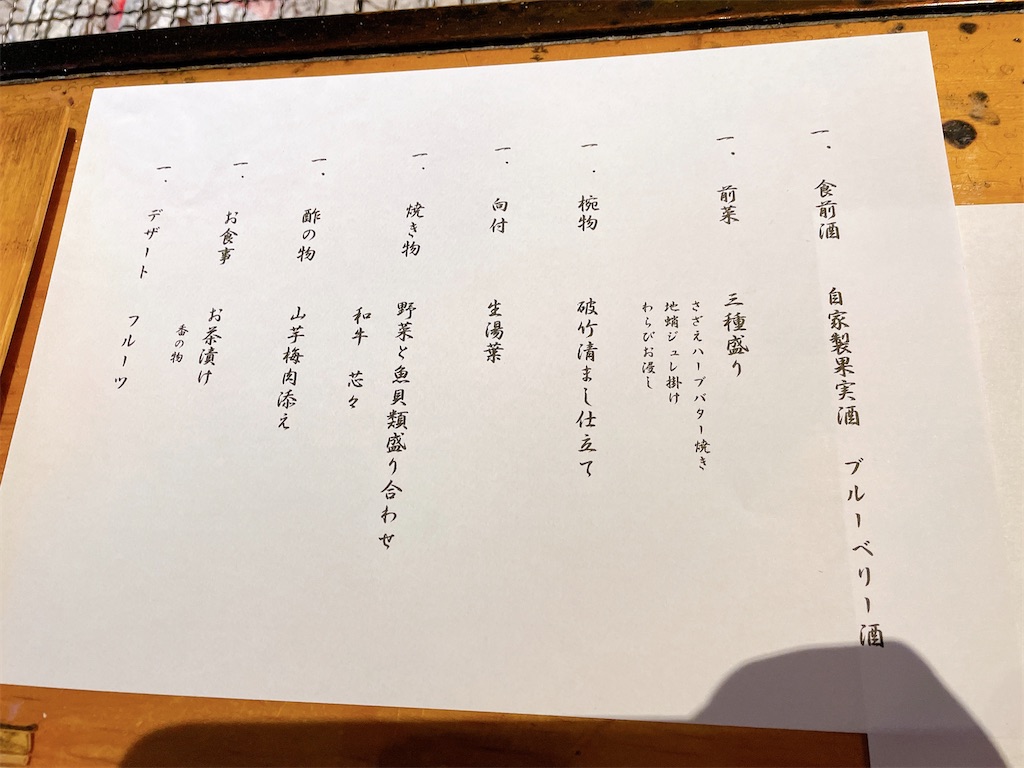 一. 食前酒 自家製果実酒 ブルーベリー酒
一. 前菜 三種盛り
さざえハーブバター焼き
地蛸ジュレ掛け
わらびお浸し
一. 椀物 破竹清まし仕立て
一. 向付 生湯葉
一. 焼き物 野菜と魚貝類盛り合わせ
和牛 芯々
一. 酢の物 山芋梅肉添え
一. お食事 お茶漬け
香の物
一. デザート フルーツ